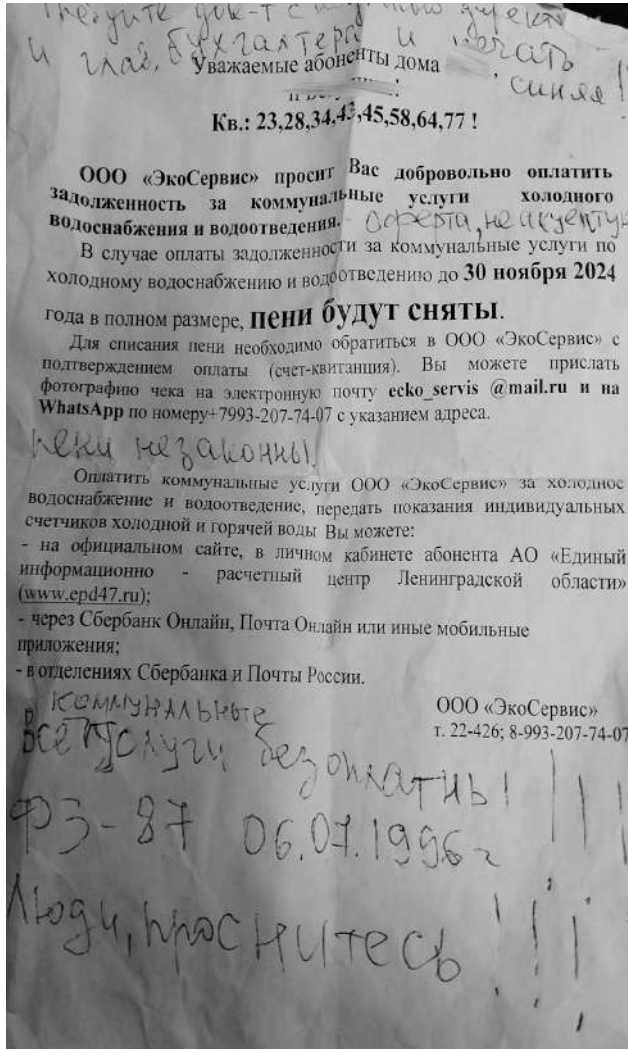 Требуйте док-т с подписью директ
и глав. бухгалтера и печать
синяя!!
Уважаемые абоненты дома
Кв.: 23,28,34,43,45,58,64,77 !
ООО «ЭкоСервис» просит Вас добровольно оплатить
задолженность за коммунальные услуги холодного
водоснабжения и водоотведения. - Оферта, не акцептую
В случае оплаты задолженности за коммунальные услуги по
холодному водоснабжению и водоотведению до 30 ноября 2024
года в полном размере, пени будут сняты.
Для списания пени необходимо обратиться в ООО «ЭкоСервис» с
подтверждением оплаты (счет-квитанция). Вы можете прислать
фотографию чека на электронную почту ecko_servis @mail.ru и на
WhatsApp по номеру+7993-207-74-07 с указанием адреса.
пени незаконны!
Оплатить коммунальные услуги ООО «ЭкоСервис» за холодное
водоснабжение и водоотведение, передать показания индивидуальных
счетчиков холодной и горячей воды Вы можете:
- на официальном сайте, в личном кабинете абонента АО «Единый
информационно - расчетный центр Ленинградской области»
(www.epd47.ru);
- через Сбербанк Онлайн, Почта Онлайн или иные мобильные
приложения;
- в отделениях Сбербанка и Почты России.
ООО «ЭкоСервис»
т. 22-426; 8-993-207-74-07
коммунальные
Все услуги безоплатны! !!!
ФЗ-87 06.07.1996г
Люди, проснитесь !!!!